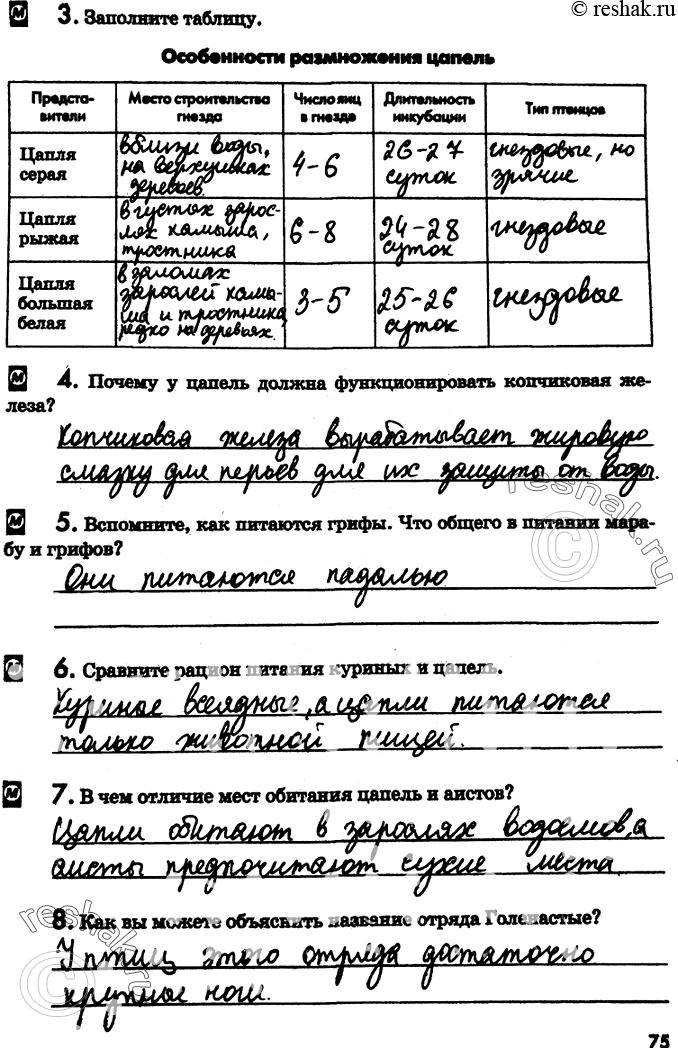 © reshak.ru
3. Заполните таблицу.
Особенности размножения цапель
Предста-
вители
Место строительства
гнезда
Число яиц
в гнезде
Длительность
инкубации
Тип птенцов
Цапля
серая
вблизи воды,
на верхушках
деревьев.
4-6
26-27
суток
гнездовые, но
зрячие
Цапля
рыжая
в густых зарос-
лях камыша,
тростника
6-8
24-28
суток
гнездовые
Цапля
большая
белая
в заломах
зарослей камы-
ша и тростника,
редко на деревьях.
3-5
25-26
суток
гнездовые
4. Почему у цапель должна функционировать копчиковая же-
леза?
Копчиковая железа вырабатывает жировую
смазку для перьев для их защиты от воды.
5. Вспомните, как питаются грифы. Что общего в питании мара-
бу и грифов?
Они питаются падалью
6. Сравните рацион питания куриных и цапель.
Куриные всеядные, а цапли питаются
только животной пищей.
7. В чем отличие мест обитания цапель и аистов?
Цапли обитают в зарослях водоемов, а
аисты предпочитают сухие места.
8. Как вы можете объяснить название отряда Голенастые?
У птиц этого отряда достаточно
крупные ноги.
75
reshak.ru
reshak.ru